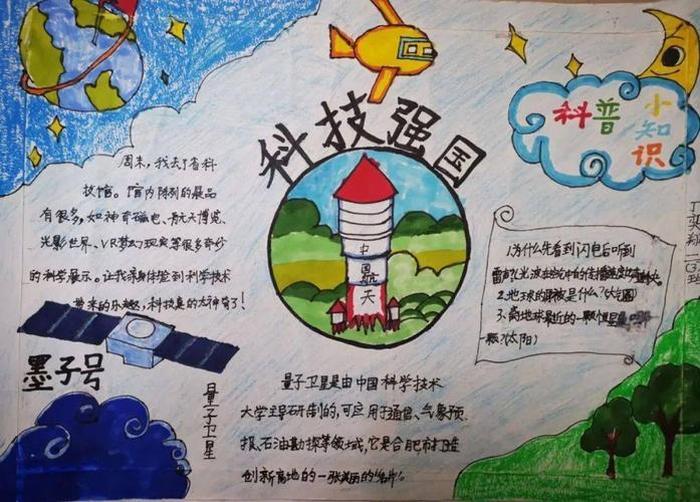 科技强国
科普小知识
周末，我去了省科
技馆。馆内陈列的展品
有很多，如神奇磁电、航天博览、
光影世界、VR梦幻现实等很多奇妙
的科学展示。让我亲身体验到科学技术
带来的乐趣，科技真的太神奇了！
中国航天
1.为什么先看到闪电后听到
雷声？(光波在空中的传播速度比声
2.地球的眼被是什么？(大气圈)
3.离地球最近的一颗恒星是
颗？(太阳)
丁英翔 二
墨子号
量子卫星
量子卫星是由中国科学技术
大学主导研制的，可应用于通信、气象预
报、石油勘探等领域，它是合肥市打造
创新高地的一张美丽的"名片"。